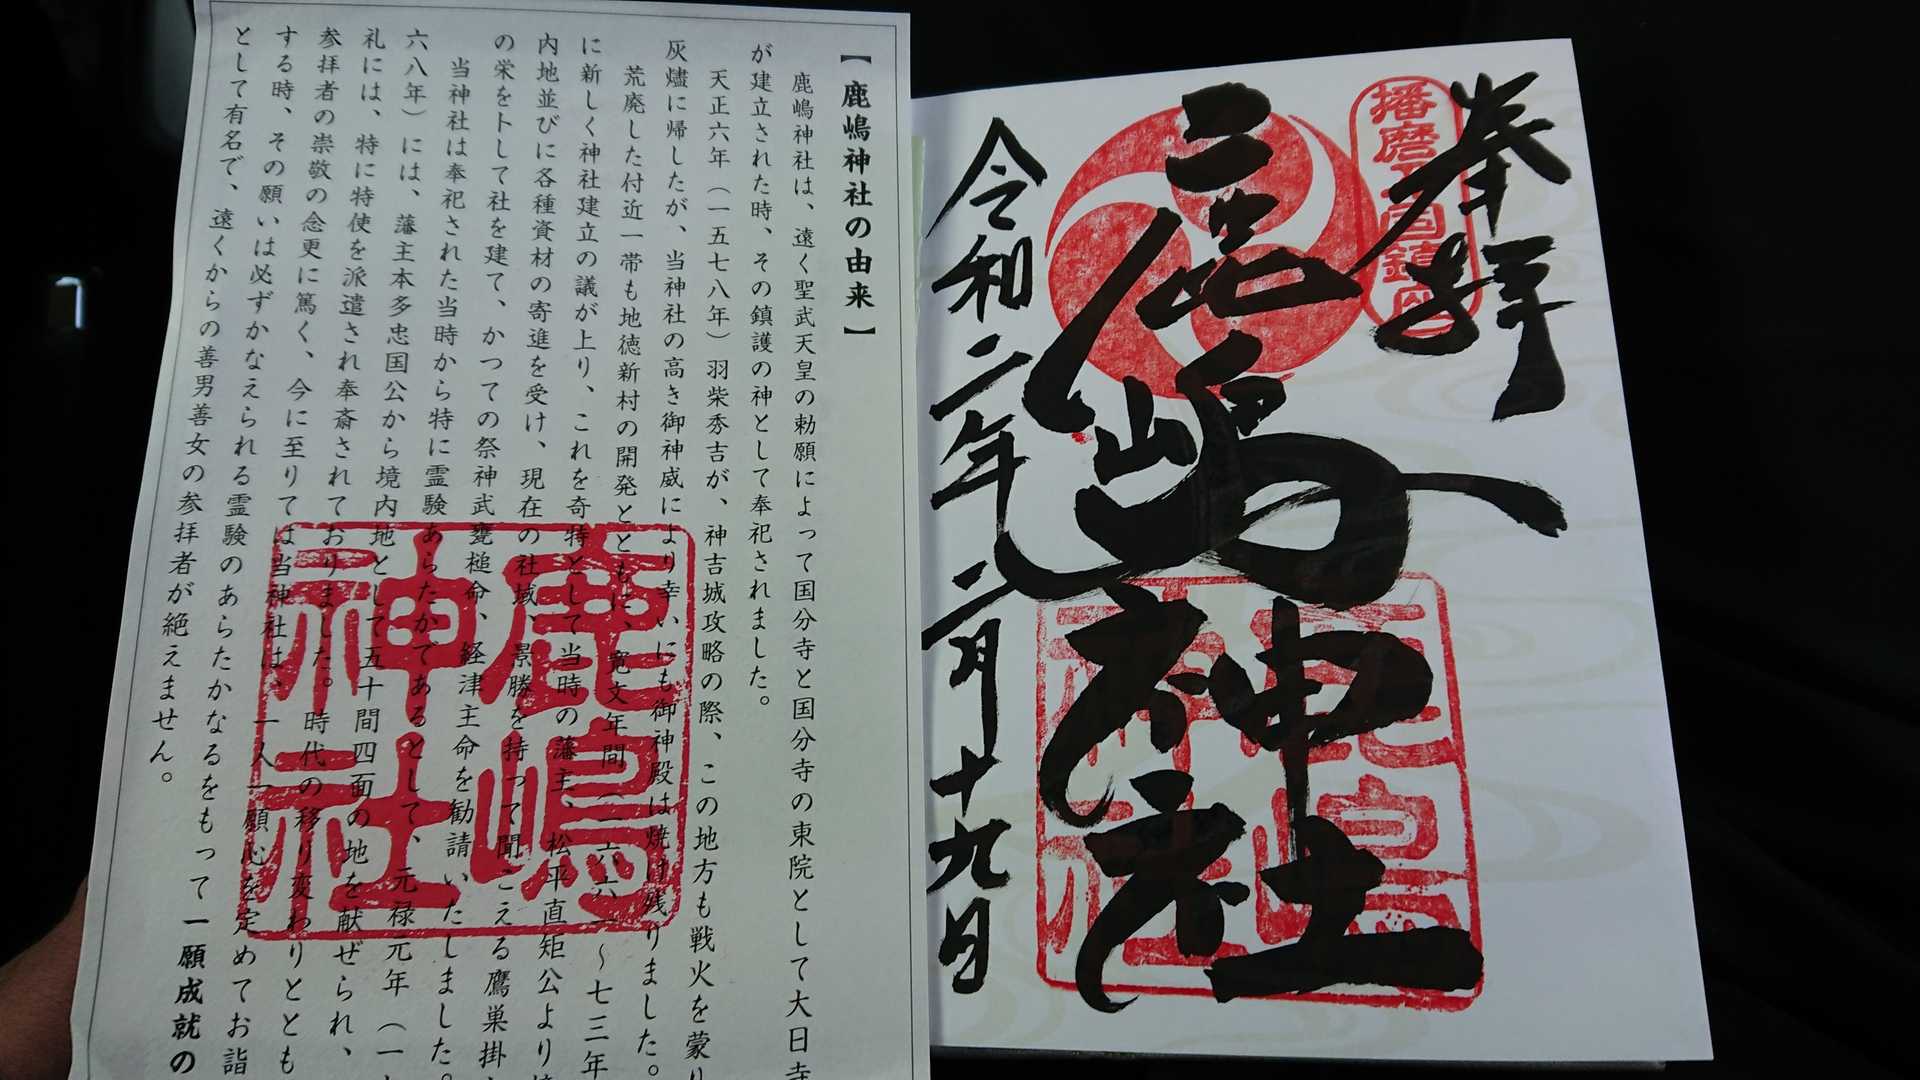 奉拝
播磨
国鎮座
鹿嶋神社
鹿嶋
神社
令和二年二月十九日
【鹿嶋神社の由来】
鹿嶋神社は、遠く聖武天皇の勅願によって国分寺と国分寺の東院として大日寺
が建立された時、その鎮護の神として奉祀されました。
天正六年（一五七八年）羽柴秀吉が、神吉城攻略の際、この地方も戦火を蒙り
灰燼に帰したが、当神社の高き御神威により幸いにも御神殿は焼け残りました。
荒廃した付近一帯も地徳新村の開発とともに、寛文年間（一六六一～七三年
に新しく神社建立の議が上り、これを奇特として当時の藩主、松平直矩公より境
内地並びに各種資材の寄進を受け、現在の社域、景勝を持って聞こえる鷹巣掛
の栄を卜して社を建て、かつての祭神武甕槌命、経津主命を勧請いたしました。
当神社は奉祀された当時から特に霊験あらたかであるとして、元禄元年（一
六八年）には、藩主本多忠国公から境内地として五十間四面の地を献ぜられ、
礼には、特に特使を派遣され奉斎されておりました。時代の移り変わりととも
参拝者の崇敬の念更に篤く、今に至りては当神社は、一人一願心を定めてお詣
する時、その願いは必ずかなえられる霊験のあらたかなるをもって一願成就の
として有名で、遠くからの善男善女の参拝者が絶えません。
鹿嶋
神社